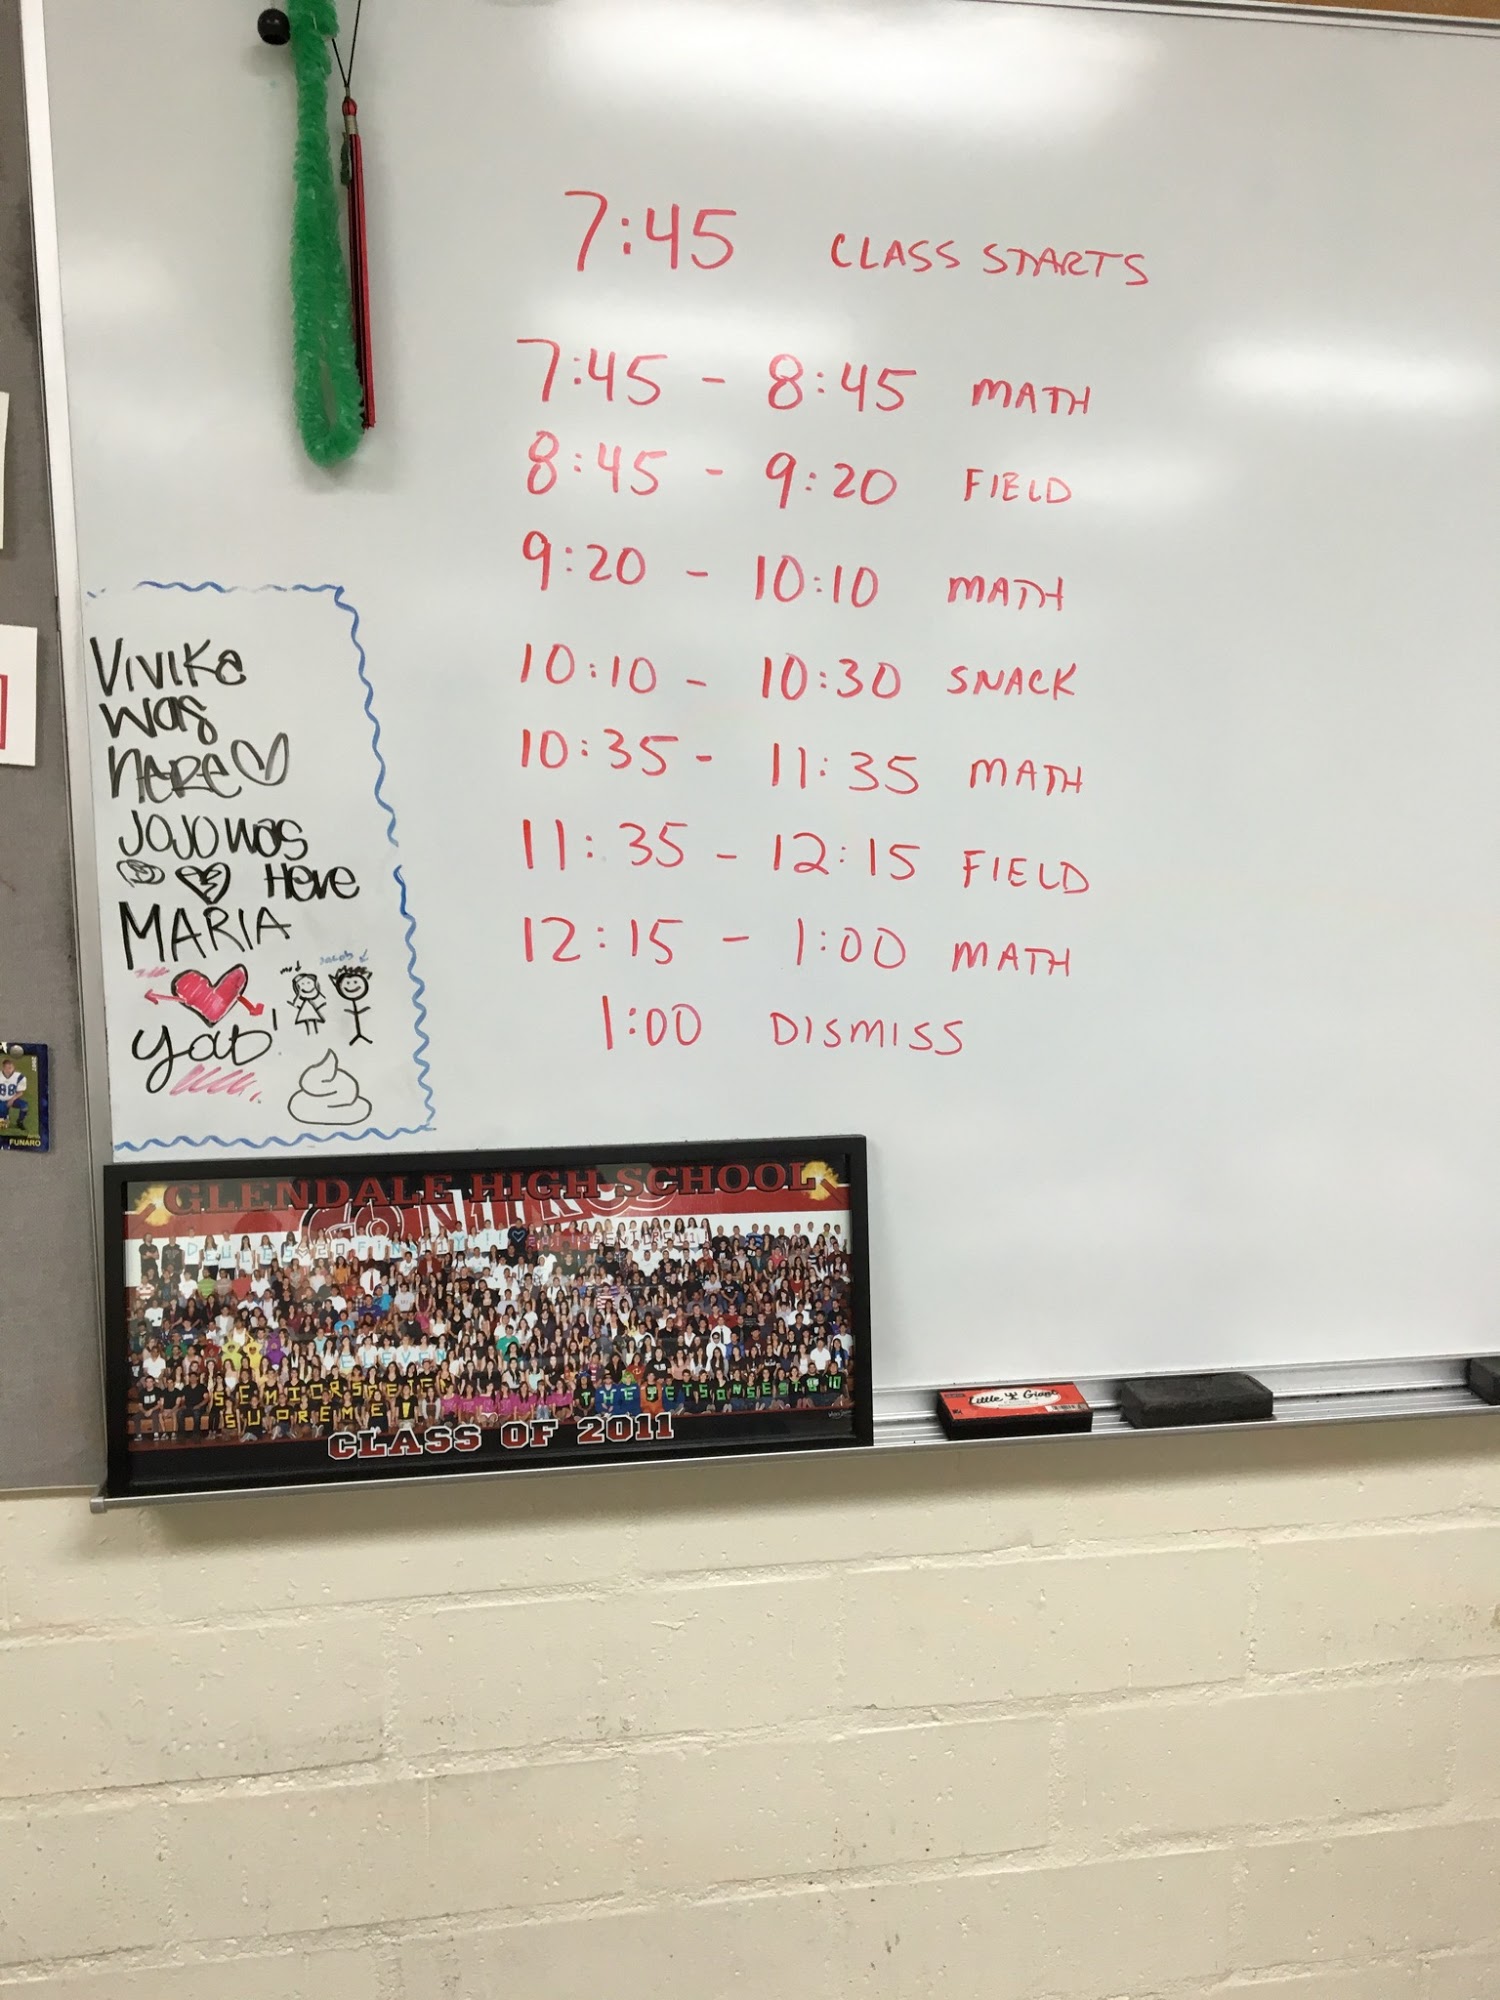 7:45 CLASS STARTS
7:45 - 8:45 MATH
8:45 - 9:20 FIELD
9:20 - 10:10 MATH
10:10 - 10:30 SNACK
10:35 - 11:35 MATH
11:35 - 12:15 FIELD
12:15 - 1:00 MATH
1:00 DISMISS
VIVIKe
was
HERE
JOJO was
Here
MARIA
yab!
FUNARO
GLENDALE HIGH SCHOOL
ELEVEN
SUPREME!
CLASS OF 2011
Little Giant